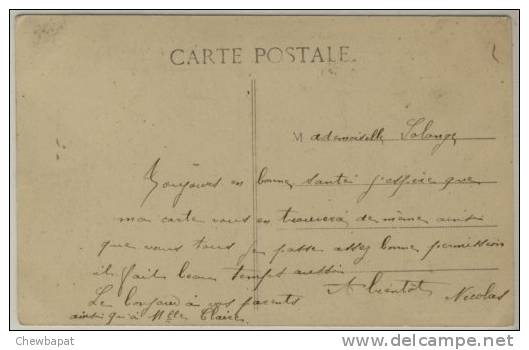 CARTE POSTALE
Mademoiselle Solange
Toujours en bonne santé j'espère que
ma carte vous en trouvera de même ainsi
que vous tous je passe assez bonne permission
il fait beau temps aussi
A bientôt
Le bonjour à vos parents
Nicolas
ainsi qu'à Mlle Claire.
Chewbapat
http://www.delcampe.net